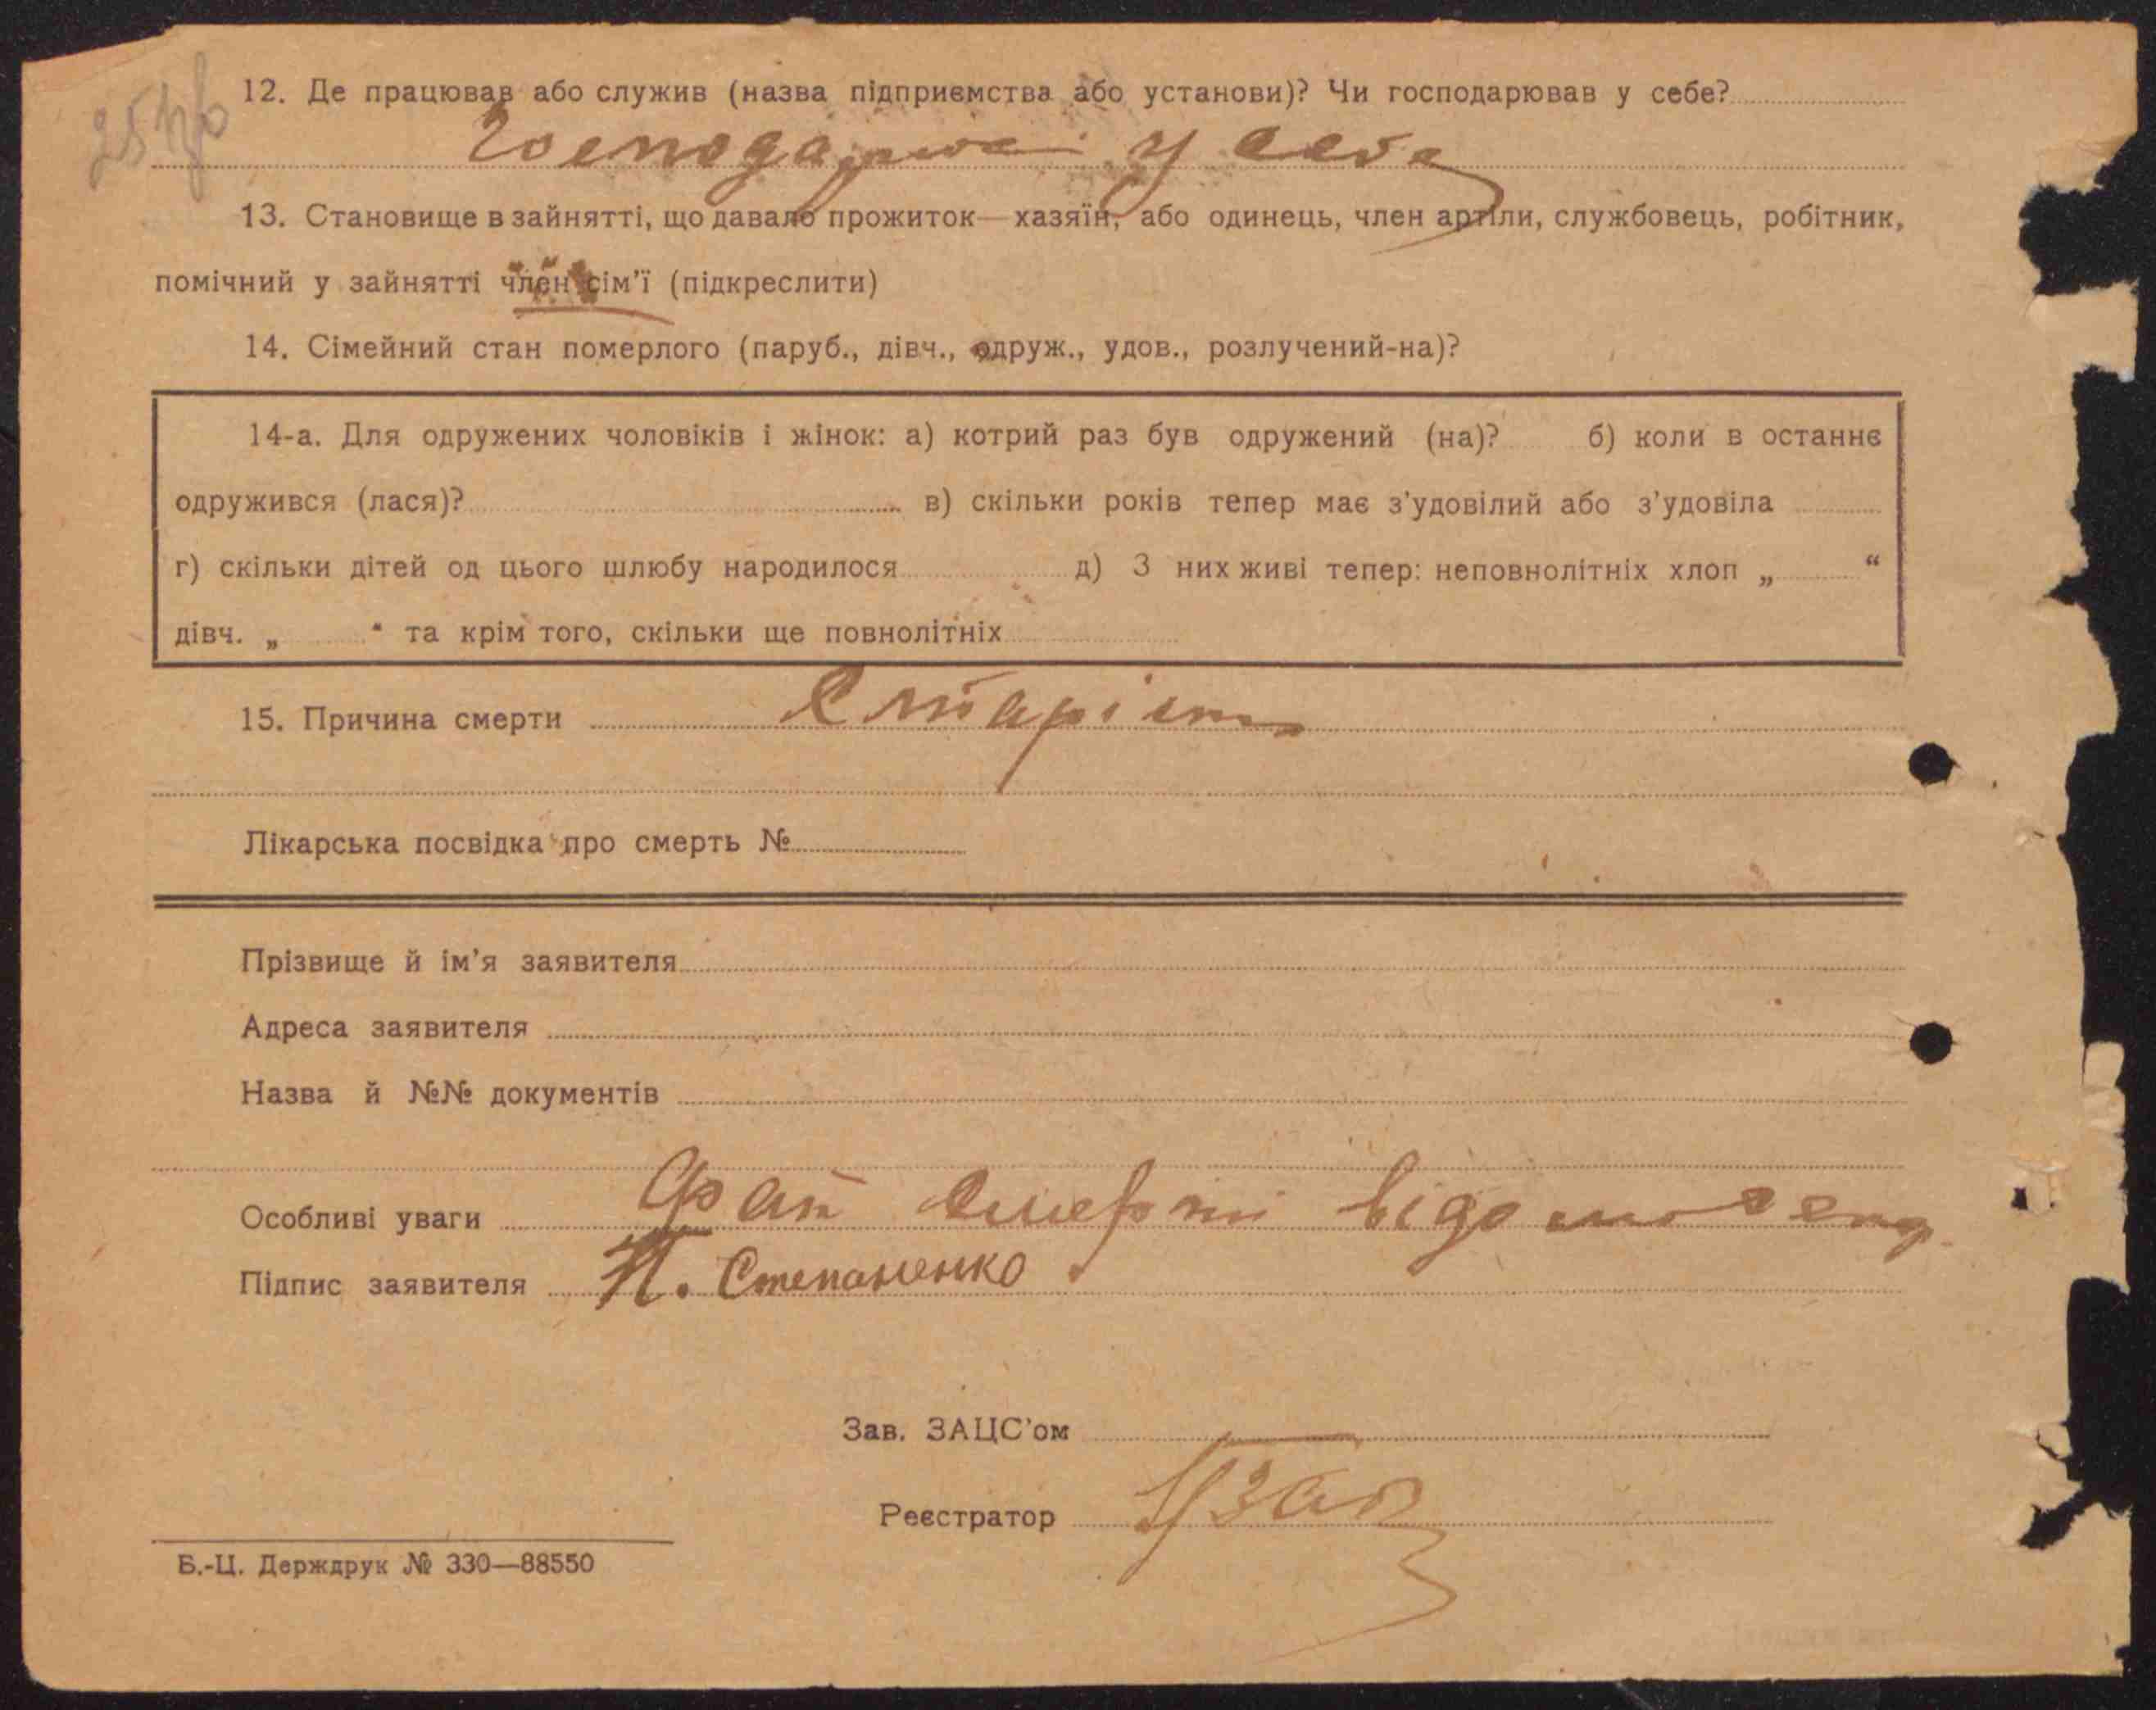 12. Де працював або служив (назва підприємства або установи)? Чи господарював у себе?
у себе
13. Становище в зайнятті, що давало прожиток—хазяїн, або одинець, член артіли, службовець, робітник,
помічний у зайнятті член сім'ї (підкреслити)
14. Сімейний стан померлого (паруб., дівч., одруж., удов., розлучений-на)?
14-а. Для одружених чоловіків і жінок: а) котрий раз був одружений (на)? б) коли в останнє
одружився (лася)? в) скільки років тепер має з'удовілий або з'удовіла
г) скільки дітей од цього шлюбу народилося д) З них живі тепер: неповнолітніх хлоп „ “
дівч. „ “ та крім того, скільки ще повнолітніх
15. Причина смерти Старість
Лікарська посвідка про смерть №
Прізвище й ім'я заявителя
Адреса заявителя
Назва й №№ документів
Особливі уваги Фат смерти
Підпис заявителя Степаненко
Зав. ЗАЦС'ом
Реєстратор
Б.-Ц. Держдрук № 330—88550